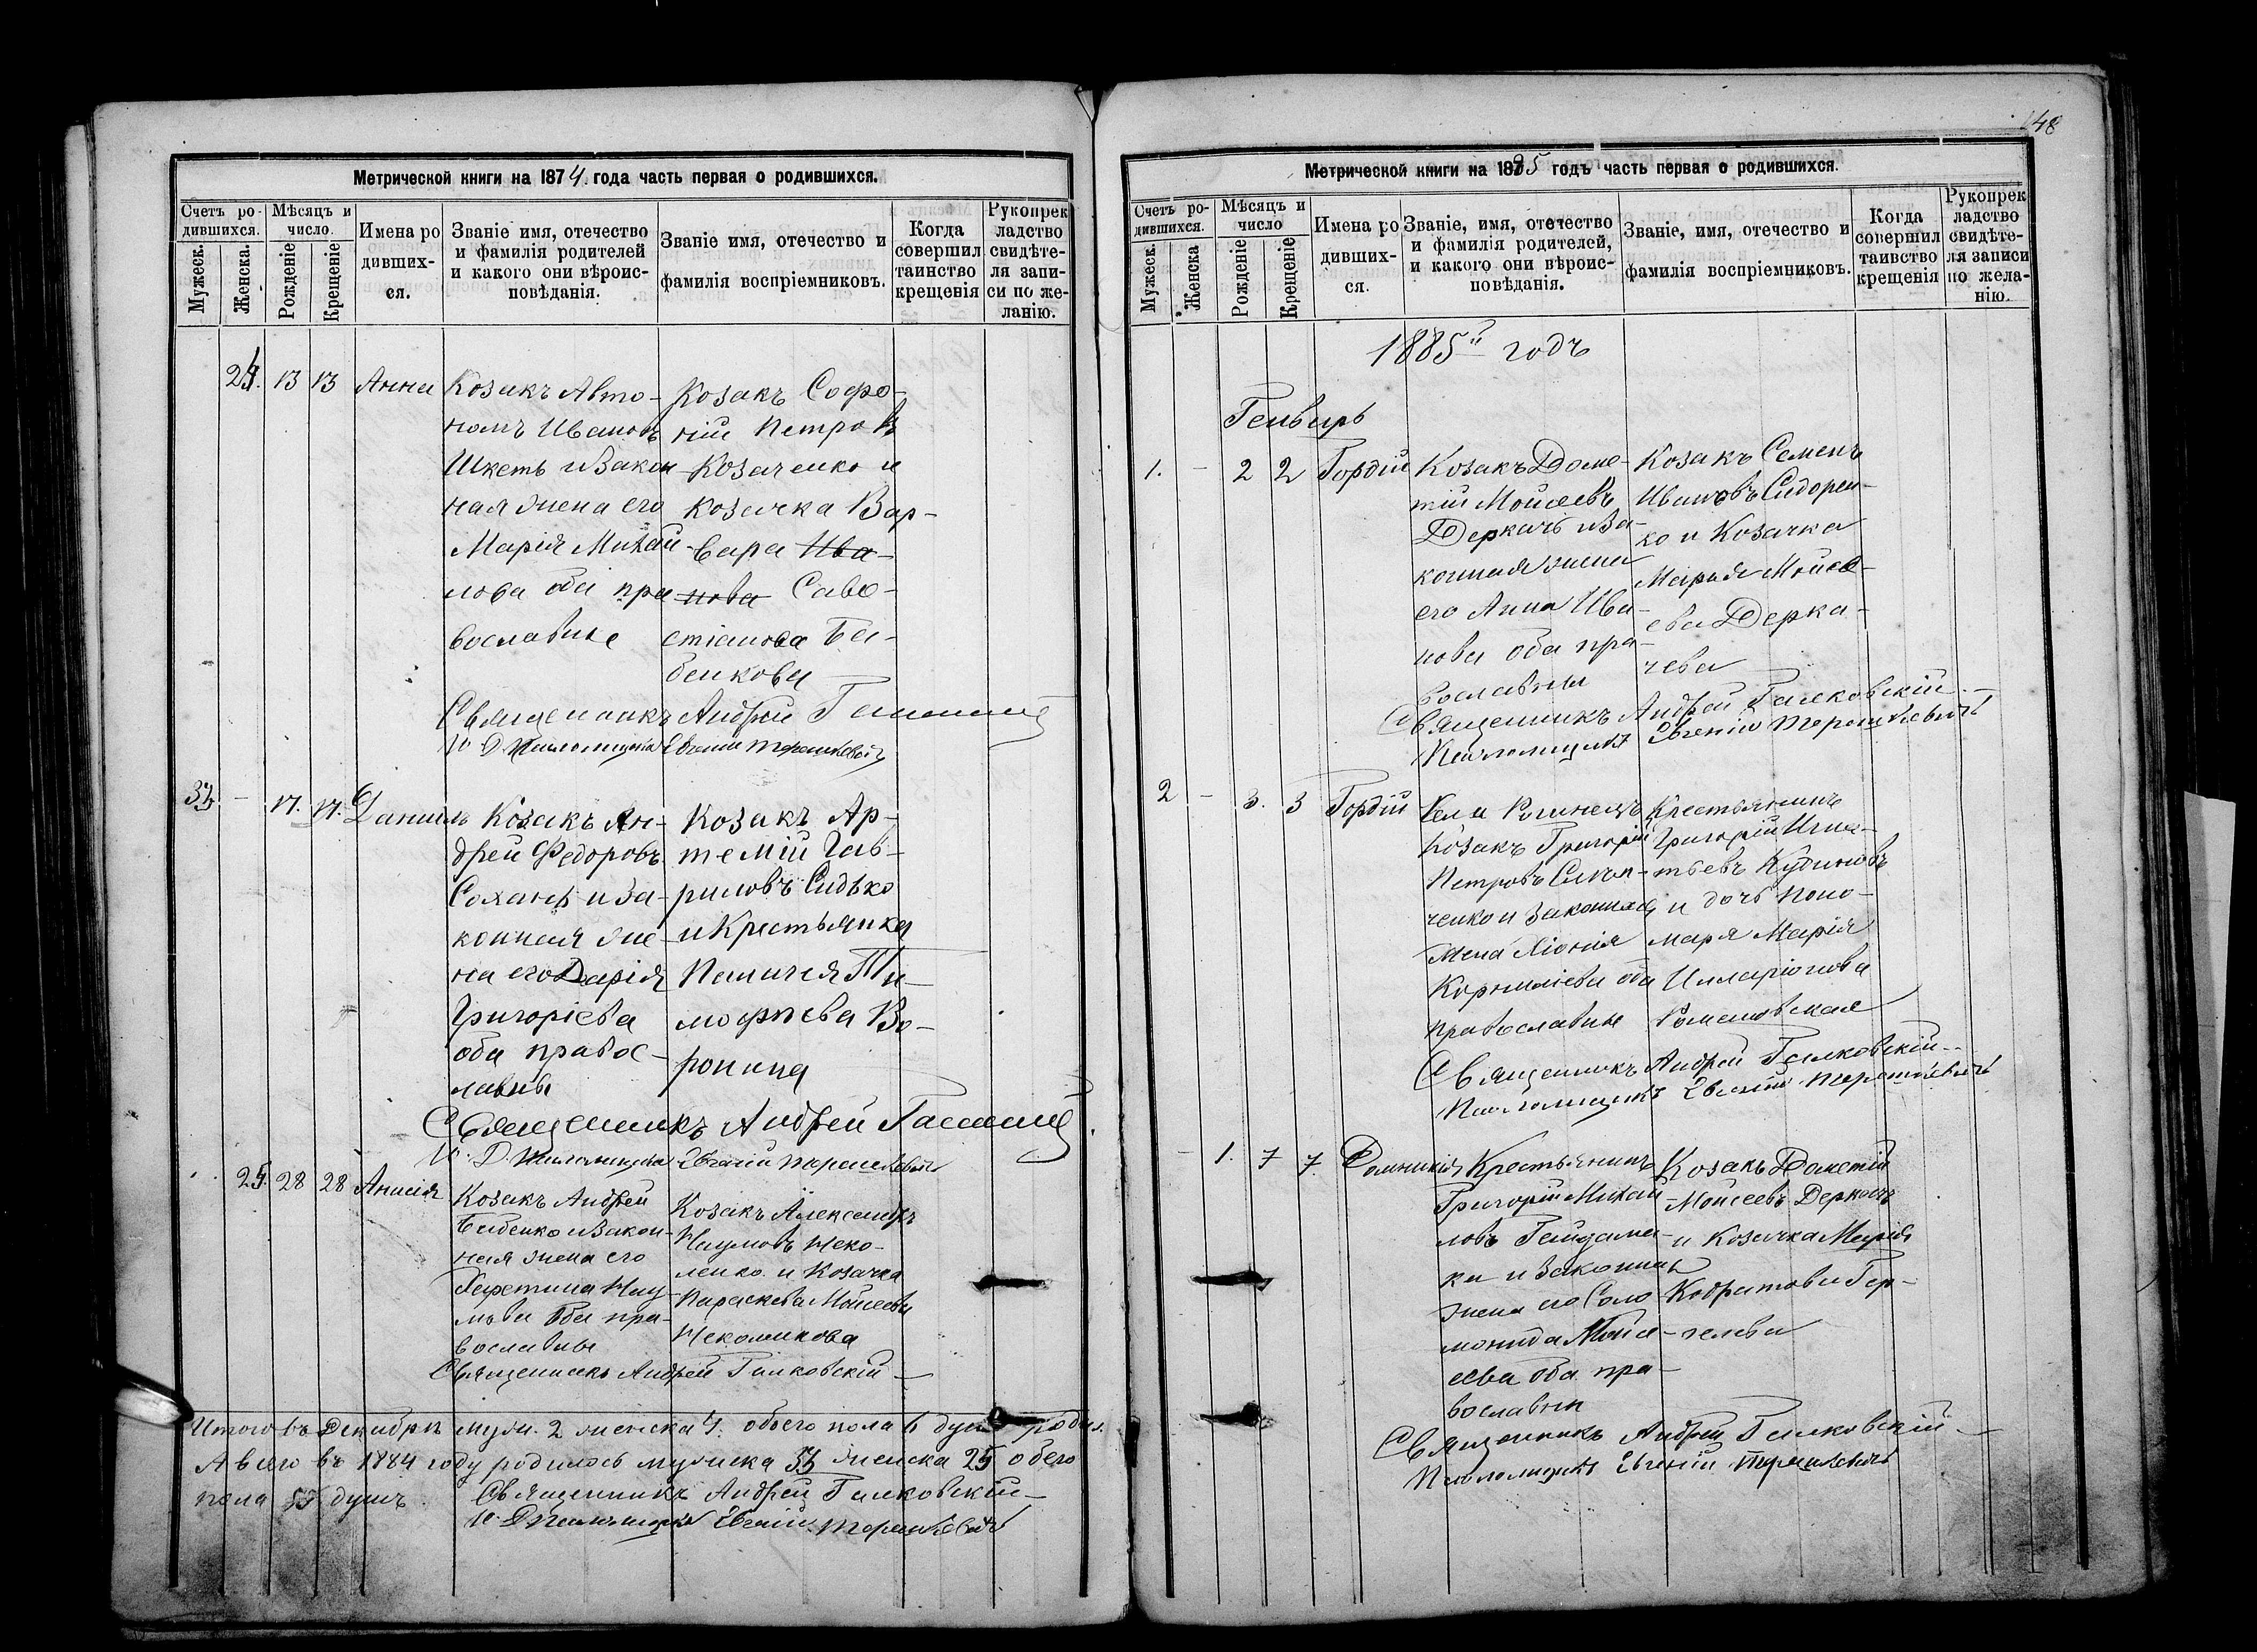 Метрической книги на 1874. года часть первая о родившихся.
Счетъ ро-
дившихся.
Мужеск.
Женска.
Мѣсяцъ и
число.
Рожденіе
Крещеніе
Имена ро
дивших-
ся.
Званіе имя, отечество
и фамилія родителей
и какого они вѣроис-
повѣданія.
Званіе имя, отечество и
фамилія воспріемниковъ.
Когда
совершил
таинство
крещенія
Рукопрек
ладство
свидѣте-
ля запи-
си по же-
ланію.
24. 13 13 Анна
Козакъ Авто-
номъ Ивановъ
Шкеть и закон
ная жена его
Марія Михаи-
лова оба пра
вославные
Козакъ Софро-
ній Петровъ
Козаченко и
козачка Вар-
вара Ива-
нова Саво-
стіанова Ба-
бенкова
Священникъ Андрей
И. Д. Псаломщика Евгеній Терешкевичъ
33 - 17. 17. Даниилъ
Козакъ Ан-
дрей Федоровъ
Сохань и за-
конная же-
на его Дарія
Григоріева
оба правос-
лавны
Козакъ Ар-
темій Гав-
риловъ Сидько
и Крестьянка
Пелагея Ти-
мофѣева Во-
ронина
Священникъ Андрей
И. Д. Псаломщика Евгеній Терешкевичъ
25. 28 28 Анисія
Козакъ Андрей
Бабенко и закон-
ная жена его
Нау-
мова оба пра-
вославны
Козакъ Александръ
Наумовъ Чеко-
ленко и Козачка
Параскева Моисеева
Чеколенкова
Священникъ Андрей Галковскій
Итого въ Декабрѣ муж. 2 женска 4. обоего пола 6 душ
А всего въ 1884 году родилось мужска 33 женска 25 обоего
пола душъ.
Священникъ Андрей Галковскій
И. Д. Псаломщика Евгеній Терешкевичъ
148
Метрической книги на 1885 годъ часть первая о родившихся.
Счетъ ро-
дившихся.
Мужеск.
Женска
Мѣсяцъ и
число
Рожденіе
Крещеніе
Имена ро
дивших-
ся.
Званіе, имя, отечество
и фамилія родителей,
и какого они вѣроис-
повѣданія.
Званіе, имя, отечество и
фамилія воспріемниковъ.
Когда
совершил
таинство
крещенія
Рукопрек
ладство
свидѣте-
ля записи
по жела-
нію.
1885й годъ
Генварь
1. - 2 2 Гордій
Козакъ Доме-
тій Моисеевъ
Деркачъ и за-
конная жена
его Анна Ива-
нова оба пра-
вославны
Козакъ Семенъ
Ивановъ Сидорен-
ко и Козачка
Марія Моисе-
ева Деркa-
чева
Священникъ Андрей Галковскій
Псаломщикъ Евгеній Терешкевичъ
2 - 3. 3 Гордій
Села
Козакъ Григорій
Петровъ
ченко и законная
жена Хіонія
Корниліева оба
православные
Крестьянинъ
Григорій Игна-
тьевъ Кудиновъ
и дочь Поно-
маря Марія
Илларіонова
Романовская
Священникъ Андрей Галковскій
Псаломщикъ Евгеній Терешкевичъ
- 1. 7 7. Домникія
Крестьянинъ
Григорій Михаи-
ловъ Гайдама-
ка и законная
жена его Соло
монида Моисе-
ева оба пра-
вославны
Козакъ Дометій
Моисеевъ Деркачъ
и козачка Марія
Кодратова Гор-
челева
Священникъ Андрей Галковскій
Псаломщикъ Евгеній Терешкевичъ